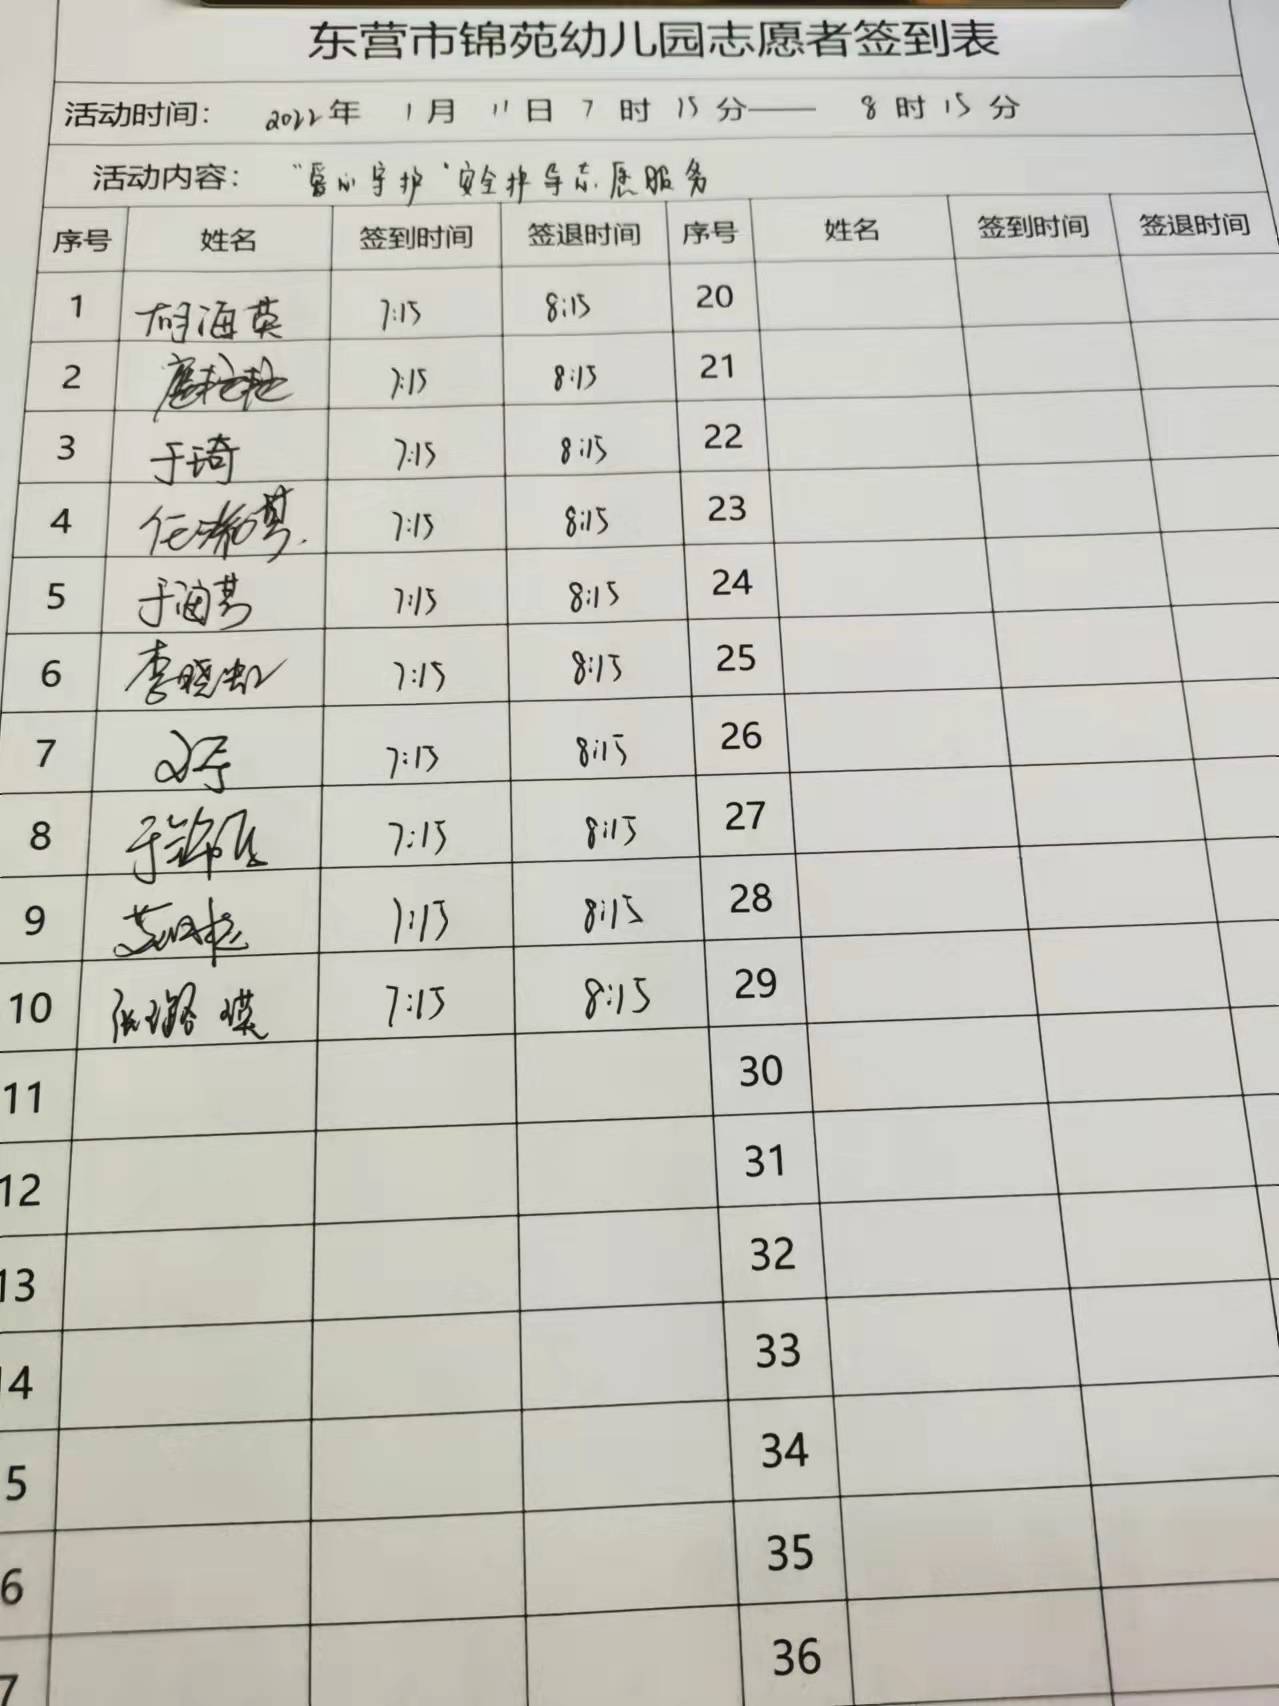 东营市锦苑幼儿园志愿者签到表
活动时间： 2022年 1月 11日 7时 15分—— 8时15分
活动内容： "爱心守护"安全护导志愿服务
序号 姓名 签到时间 签退时间 序号 姓名 签到时间 签退时间
1 胡海英 7:15 8:15 20
2 7:15 8:15 21
3 于琦 7:15 8:15 22
4 任 7:15 8:15 23
5 于海 7:15 8:15 24
6 李晓虹 7:15 8:15 25
7 7:15 8:15 26
8 于 7:15 8:15 27
9 7:15 8:15 28
10 张璐瑛 7:15 8:15 29
11 30
12 31
13 32
14 33
5 34
6 35
7 36